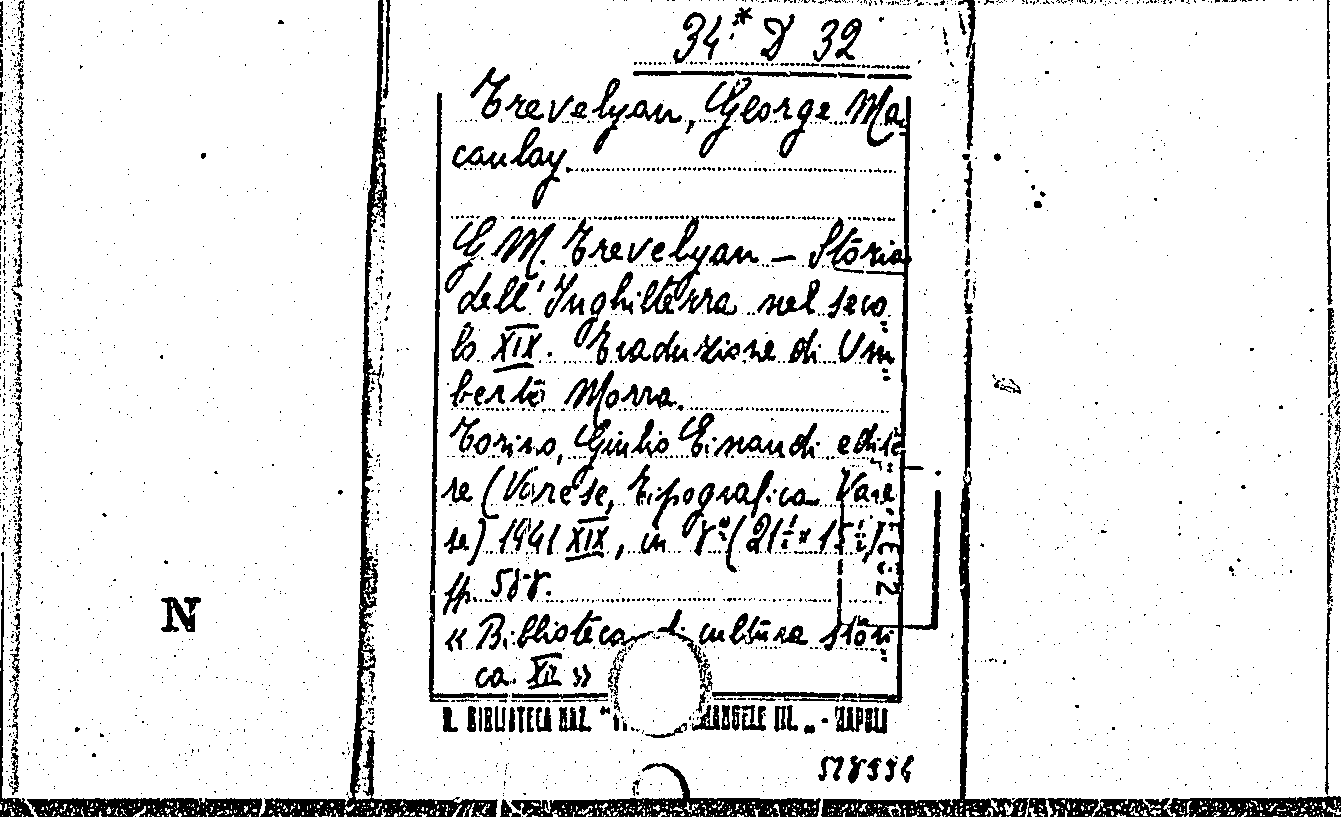 34.* D 32
Trevelyan, George Ma
caulay.
G. M. Trevelyan — Storia
dell'Inghilterra nel seco
lo XIX. Traduzione di Um
berto Morra.
Torino, Giulio Einaudi edito
re (Varese, Tipografica Vare
se) 1941 XIX, in 8° (21½ × 15½)
pp. 588.
« Biblioteca di cultura stori
ca. XII »
R. BIBLIOTECA NAZ. " EMANUELE III. „ - NAPOLI
N